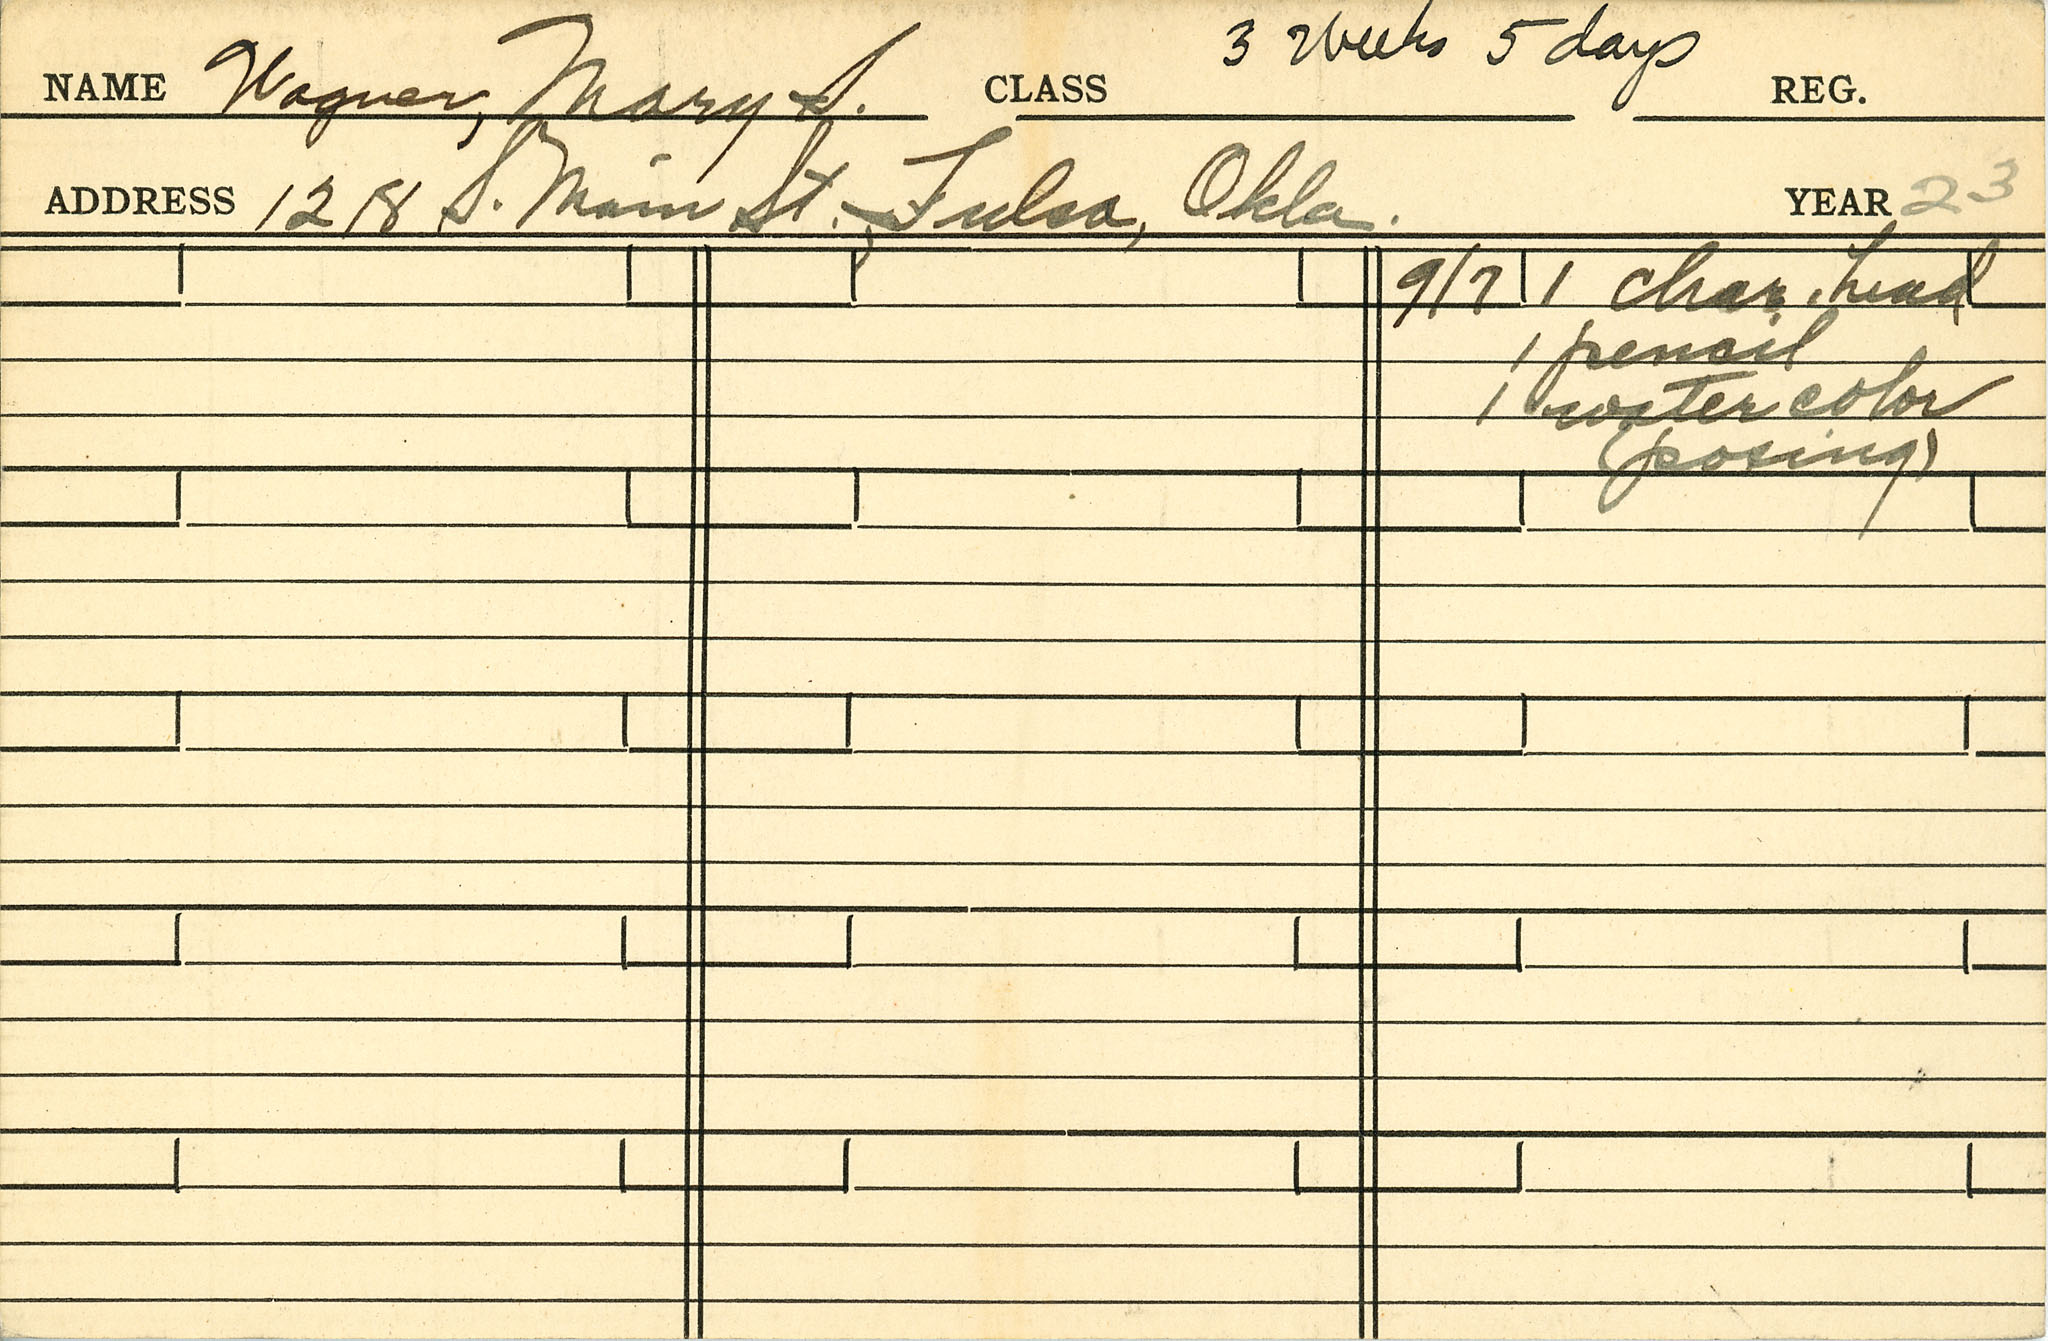 3 Weeks 5 days
NAME Wagner, Mary S. CLASS REG.
ADDRESS 1218 S. Main St., Tulsa, Okla. YEAR 23
9/7 1 char. head
1 pencil
1 water color
(posing)